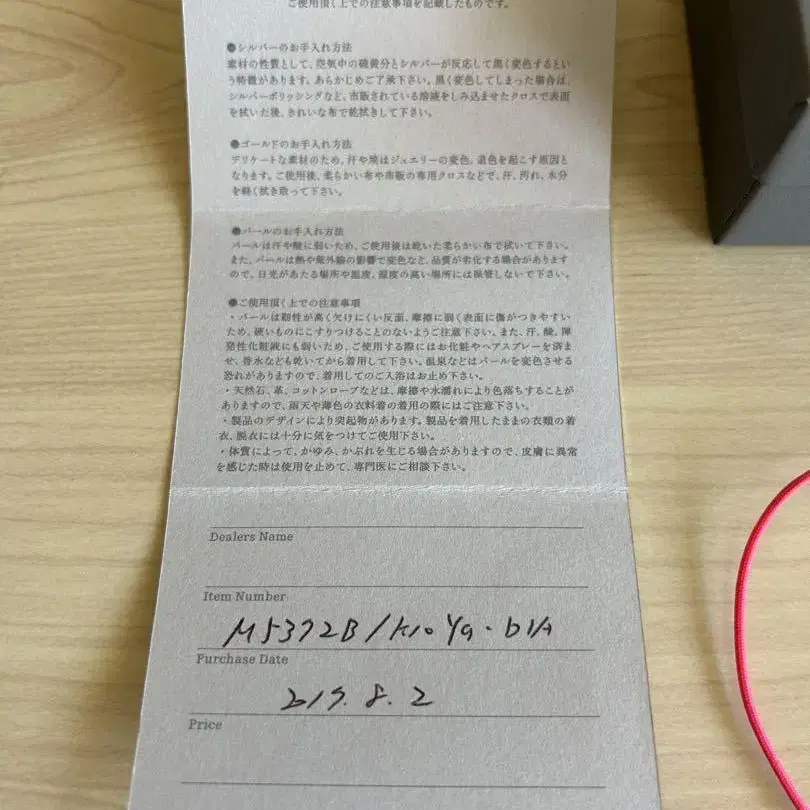 ご使用頂く上での注意事項を記載したものです。
●シルバーのお手入れ方法
素材の性質として、空気中の硫黄分とシルバーが反応して黒く変色するとい
う特徴があります。あらかじめご了承下さい。黒く変色してしまった場合は、
シルバーポリッシングなど、市販されている溶液をしみ込ませたクロスで表面
を拭いた後、きれいな布で乾拭きして下さい。
●ゴールドのお手入れ方法
デリケートな素材のため、汗や埃はジュエリーの変色、退色を起こす原因と
なります。ご使用後、柔らかい布や市販の専用クロスなどで、汗、汚れ、水分
を軽く拭き取って下さい。
●パールのお手入れ方法
パールは汗や酸に弱いため、ご使用後は乾いた柔らかい布で拭いて下さい。
また、パールは熱や紫外線の影響で変色など、品質が劣化する場合があります
ので、日光があたる場所や温度、湿度の高い場所には保管しないで下さい。
●ご使用頂く上での注意事項
・パールは靭性が高く欠けにくい反面、摩擦に弱く表面に傷がつきやすい
ため、硬いものにこすりつけることのないようご注意下さい。また、汗、酸、揮
発性化粧液にも弱いため、ご使用する際にはお化粧やヘアスプレーを済ま
せ、香水なども乾いてから着用して下さい。温泉などはパールを変色させる
恐れがありますので、着用してのご入浴はお止め下さい。
・天然石、革、コットンロープなどは、摩擦や水濡れにより色落ちすることが
ありますので、雨天や薄色の衣料着の着用の際にはご注意下さい。
・製品のデザインにより突起物があります。製品を着用したままの衣類の着
衣、脱衣には十分に気をつけてご使用下さい。
・体質によって、かゆみ、かぶれを生じる場合がありますので、皮膚に異常
を感じた時は使用を止めて、専門医にご相談下さい。
Dealers Name
Item Number
M5372B/K10YG・DIA
Purchase Date
2019.8.2
Price